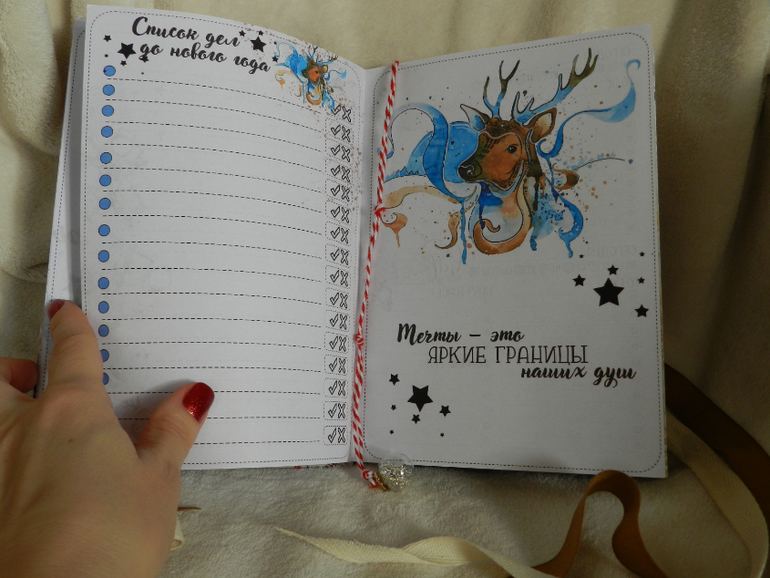 Список дел
до нового года
Мечты – это
ЯРКИЕ ГРАНИЦЫ
наших душ